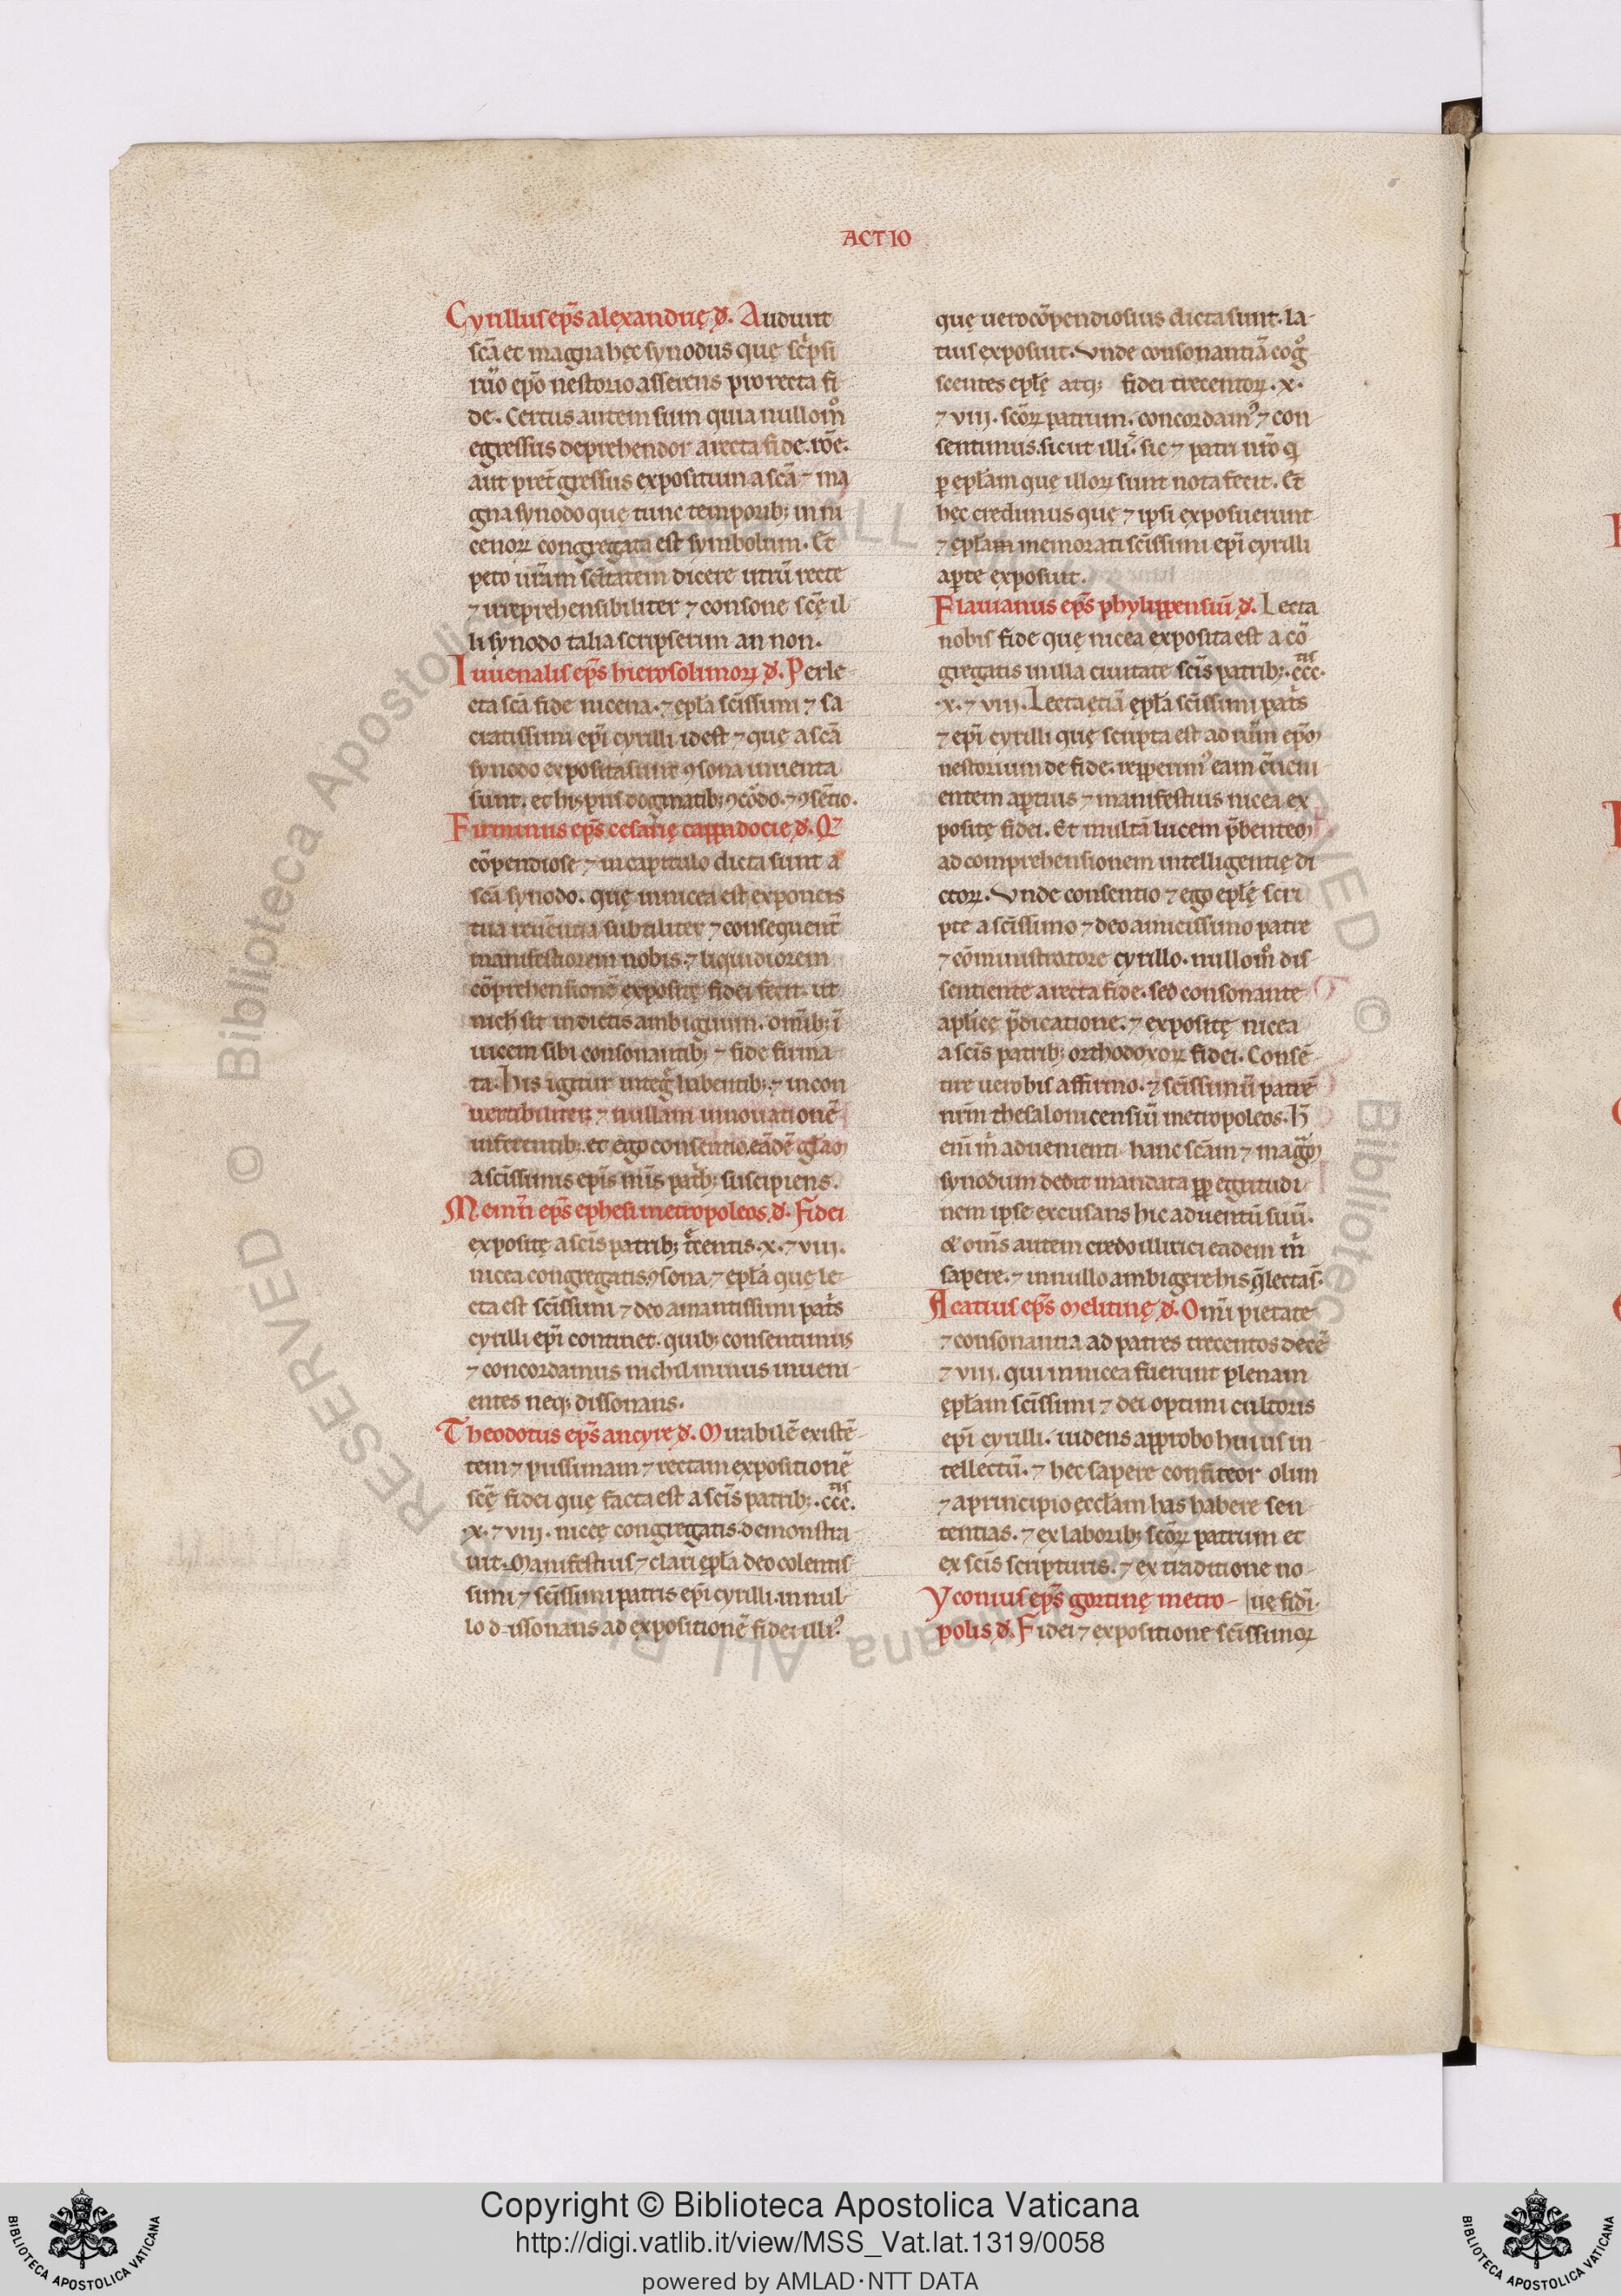 ACTIO
Cyrillus ep̃s alexandrię .đ. Audiuit
scā et magna hęc synodus quę sc̾psi
rūo ep̃o nestorio asserens pro recta fi
de. Certus autem sum quia nullom̊
egressus deprehendor a recta fide. rōe.
aut pret̾gressus expositum a scā ⁊ ma
gna synodo quę tunc temporib; in ni
cenoꝝ congregata est symbolum. Et
peto ur̃am sc̃itatem dicere utrū recte
⁊ irreprehensibiliter ⁊ consone scę̃ il
li synodo talia scripserim an non.
Iuuenalis ep̃s hierosolimoꝝ .đ. Perle-
cta scā fide nicena. ⁊ ep̃la sc̃issimi ⁊ sa
cratissimi ep̃i cyrilli idest ⁊ quę a scā
synodo exposita sunt ꝯsona inuenta
sunt. et his piis dogmatib; ꝯcōdo. ⁊ ꝯsētio.
Firminus ep̃s cesarię cappadocie .đ. Qꝫ
cōpendiose ⁊ in capitulo dicta sunt a
scā synodo. quę in nicea est exponens
tua reuerentia subtiliter ⁊ consequent̃
manifestiorem nobis ⁊ liquidiorem
cōprehensionē expositę fidei fecit. ut
nich̾ sit in dictis ambiguum. omĩb; ĩ
uicem sibi consonantib; ⁊ fide firma
ta. His igitur integ̾ habentib; ⁊ incon
uertibiliter ⁊ nullam innouationē
inferentib; et ego consentio. eādē gl̃am
a sc̃issimis ep̃is nr̃is patrib; suscipiens.
Memñ ep̃s ephesi metropoleos .đ. Fidei
expositę a scīs patrib; trecentis .x. ⁊ viii.
nicea congregatis ꝯsona ⁊ ep̃la quę le-
cta est sc̃issimi ⁊ deo amantissimi pat̾s
cyrilli ep̃i continet. quib; consentimus
⁊ concordamus nichil minus inueni-
entes neq; dissonans.
Theodotus ep̃s ancyrę .đ. Mirabilē existē-
tem ⁊ piissimam ⁊ rectam expositionē
scę̃ fidei quę facta est a scīs patrib; .ccc.tis
.x. ⁊ viii. nicęę congregatis demonstra-
uit. Manifestius ⁊ clari ep̃la deo colentis-
simi ⁊ sc̃issimi patris ep̃i cyrilli in nul-
lo dissonans ad expositionē fidei illiꝰ
quę uero cōpendiosius dicta sunt. la-
tius exposuit. Unde consonantiā cog̊
scentes epl̃ę atq; fidei trecentoꝝ .x.
⁊ viii. scōꝝ patrum. concordamꝰ ⁊ con
sentimus. sicut illi. sic ⁊ patri nr̃o q
p ep̃lam quę illoꝝ sunt nota fecit. Et
hęc credimus quę ⁊ ipsi exposuerunt
⁊ ep̃lam memorati sc̃issimi ep̃i cyrilli
apte exposuit.
Flauianus ep̃s phylippensiū .đ. Lecta
nobis fide quę nicea exposita est a cō
gregatis in illa ciuitate scīs patrib; .ccc.tis
.x. ⁊ viii. Lecta etiā ep̃la sc̃issimi pat̾s
⁊ ep̃i cyrilli quę scripta est ad uirum ep̃m
nestorium de fide. repperimꝰ eam cōueni
entem aptius ⁊ manifestius nicea ex
positę fidei. Et multā lucem p̃bentem
ad comprehensionem intelligentię di
ctoꝝ. Unde consentio ⁊ ego epl̃ę scri
pte a sc̃issimo ⁊ deo amicissimo patre
⁊ cōministratore cyrillo. nullom̊ dis-
sentiente a recta fide. sed consonante
apl̃icę p̃dicatione. ⁊ expositę nicea
a scīs patrib; orthodoxoꝝ fidei. Consē-
tire uero his affirmo. ⁊ sc̃issimū patrē
nr̃m thesalonicensiū metropoleos. H̃
enī m̾ aduenienti hanc scām ⁊ magnam
synodum dedit mandata ꝓp egritudi
nem ipse excusans hic aduentū suū.
& om̃s autem credo illirici eadem m̾
sapere. ⁊ in nullo ambigere his q̃ lecta s̃.
Acatius ep̃s melitinę .đ. Omĩ pietate
⁊ consonantia ad patres trecentos decē
⁊ viii. qui in nicea fuerunt plenam
ep̃lam sc̃issimi ⁊ dei optimi cultoris
ep̃i cyrilli. uidens approbo huius in
tellectū. ⁊ hec sapere confiteor olim
⁊ a principio ęccl̃am has habere sen
tentias. ⁊ ex laborib; scōꝝ patrum et
ex scīs scripturis. ⁊ ex traditione no-
uę fidī.
Yconius ep̃s gortinę metro-
polis .đ. Fidei ⁊ expositione sc̃issimoꝝ
Copyright © Biblioteca Apostolica Vaticana
http://digi.vatlib.it/view/MSS_Vat.lat.1319/0058
powered by AMLAD·NTT DATA
BIBLIOTECA APOSTOLICA VATICANA
BIBLIOTECA APOSTOLICA VATICANA